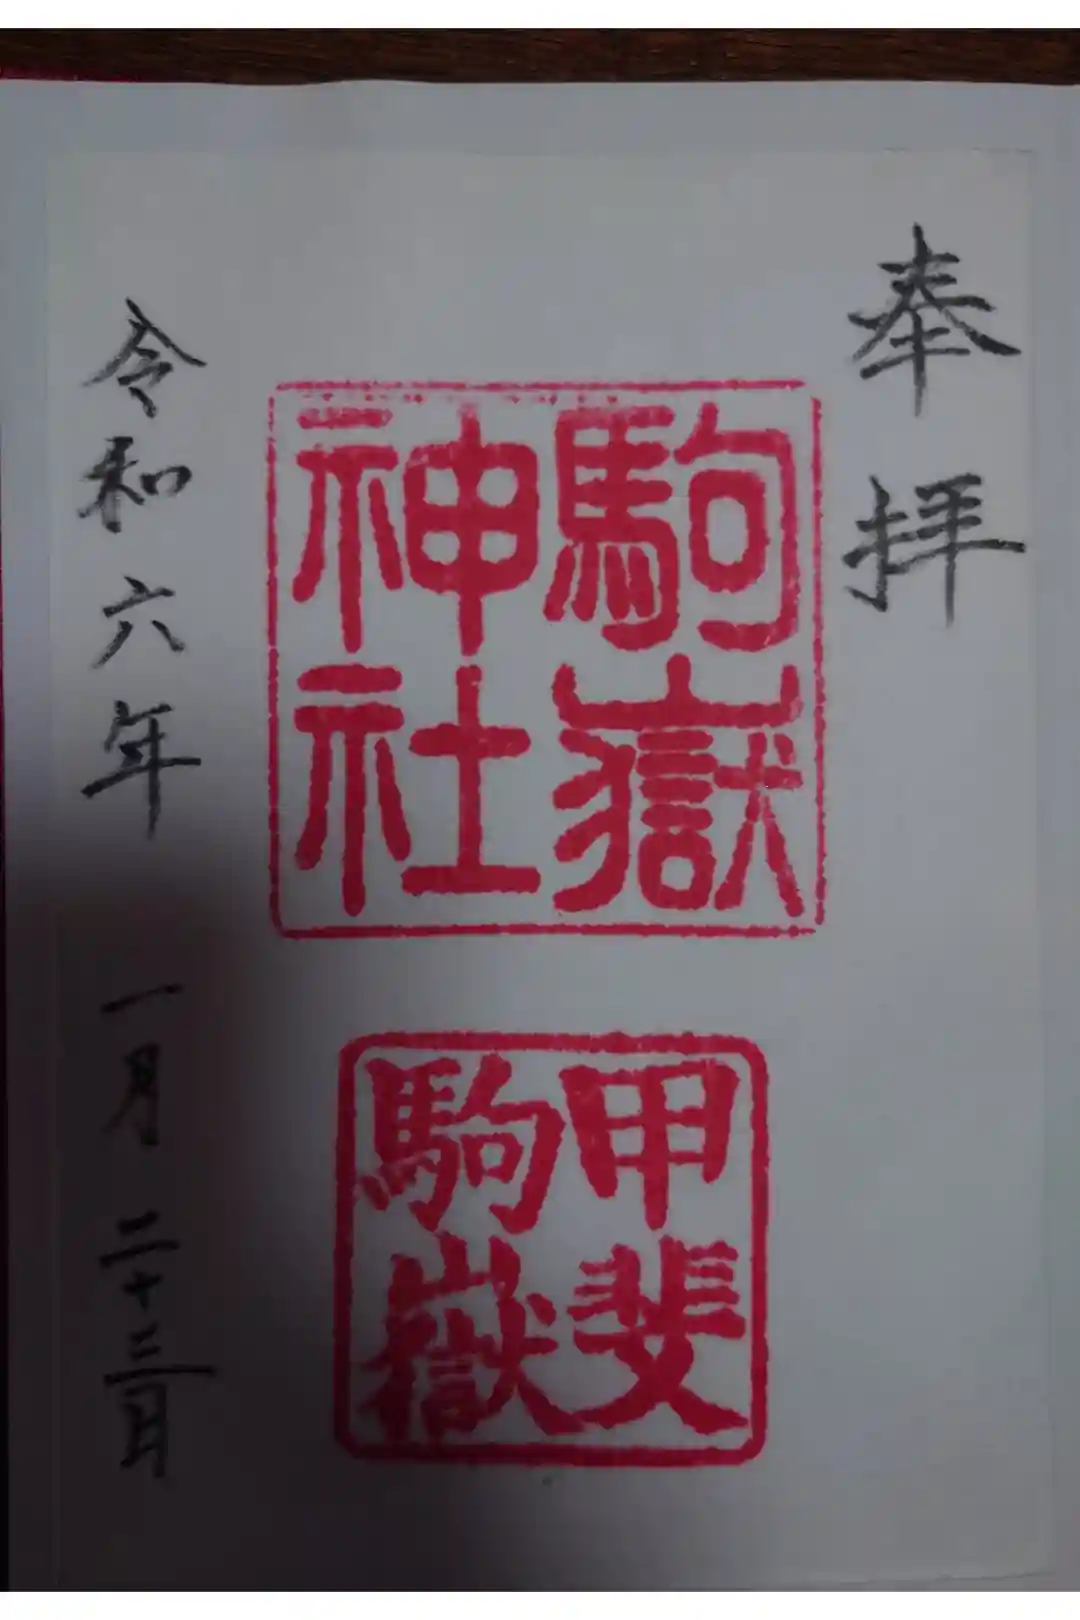 奉拝
駒嶽
神社
甲斐
駒嶽
令和六年 一月二十三日